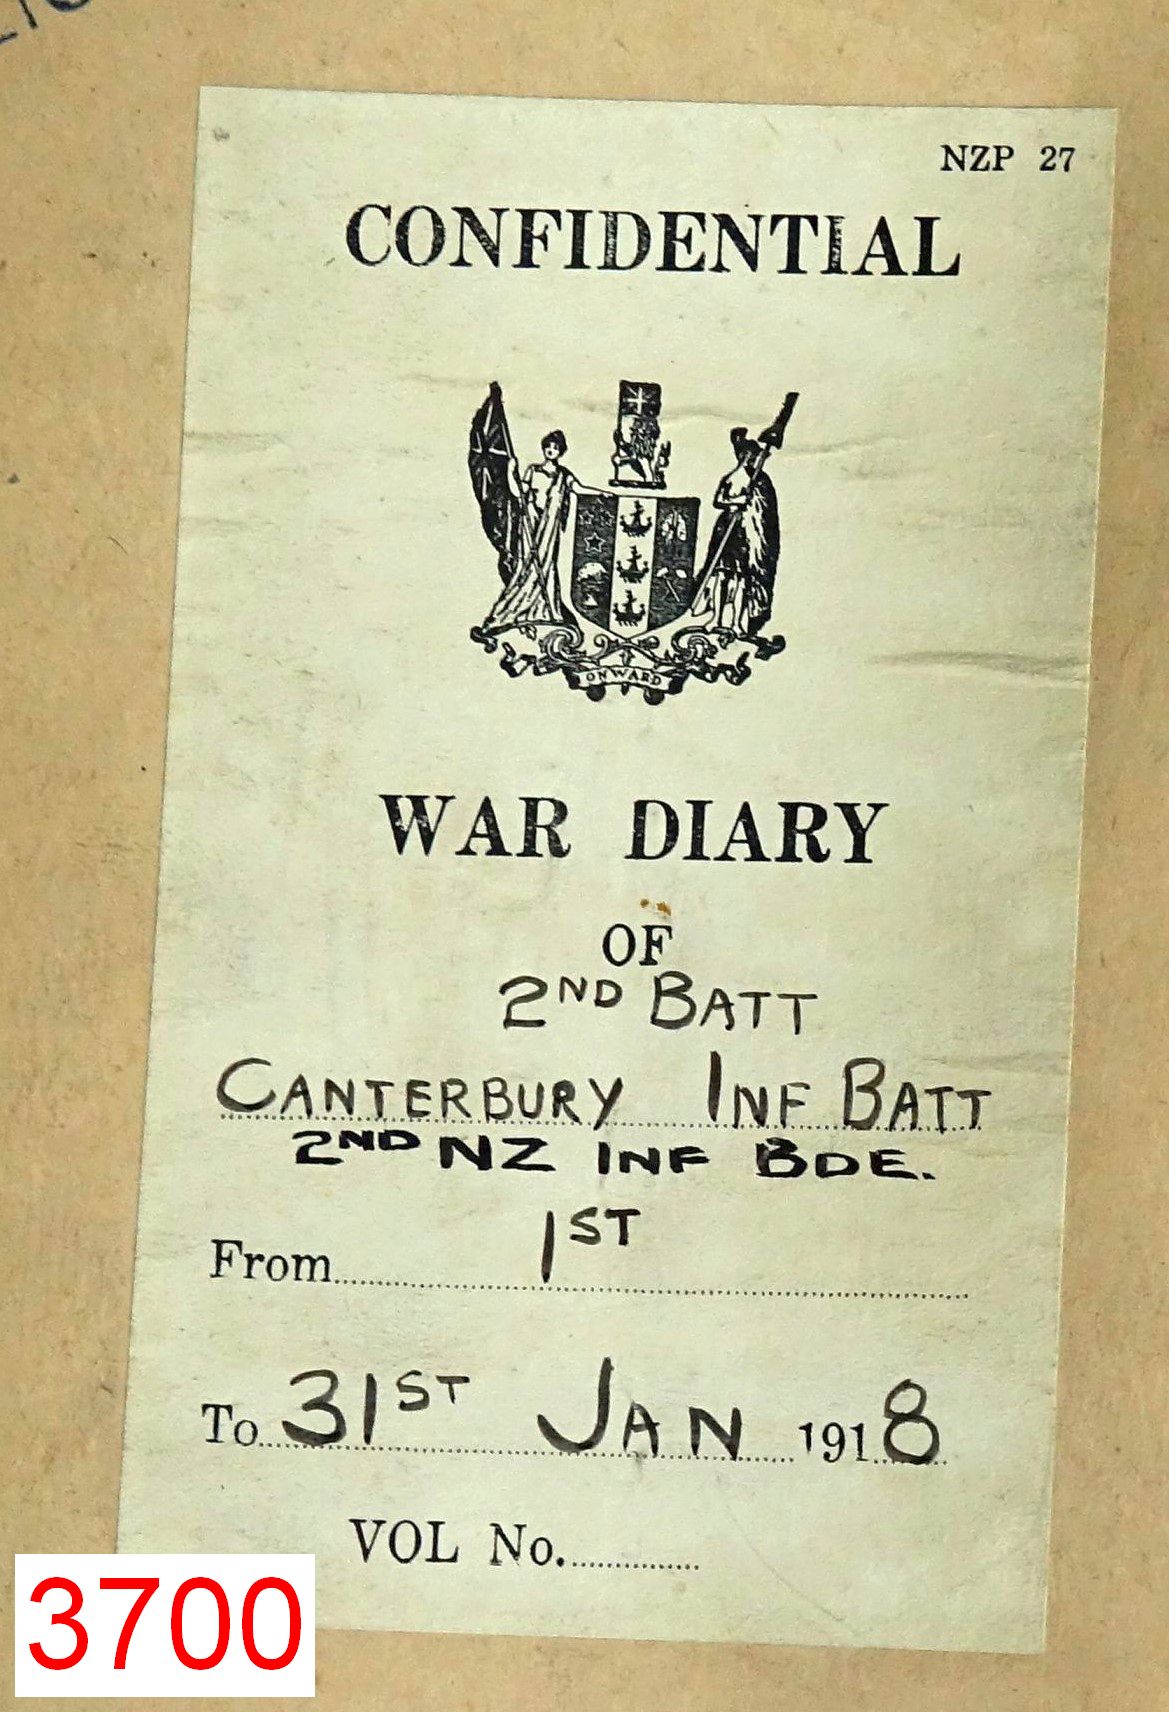 NZP 27
CONFIDENTIAL
ONWARD
WAR DIARY
OF
2ND BATT
CANTERBURY INF BATT
2ND NZ INF BDE.
From 1ST
To 31ST JAN 1918
VOL No.
3700